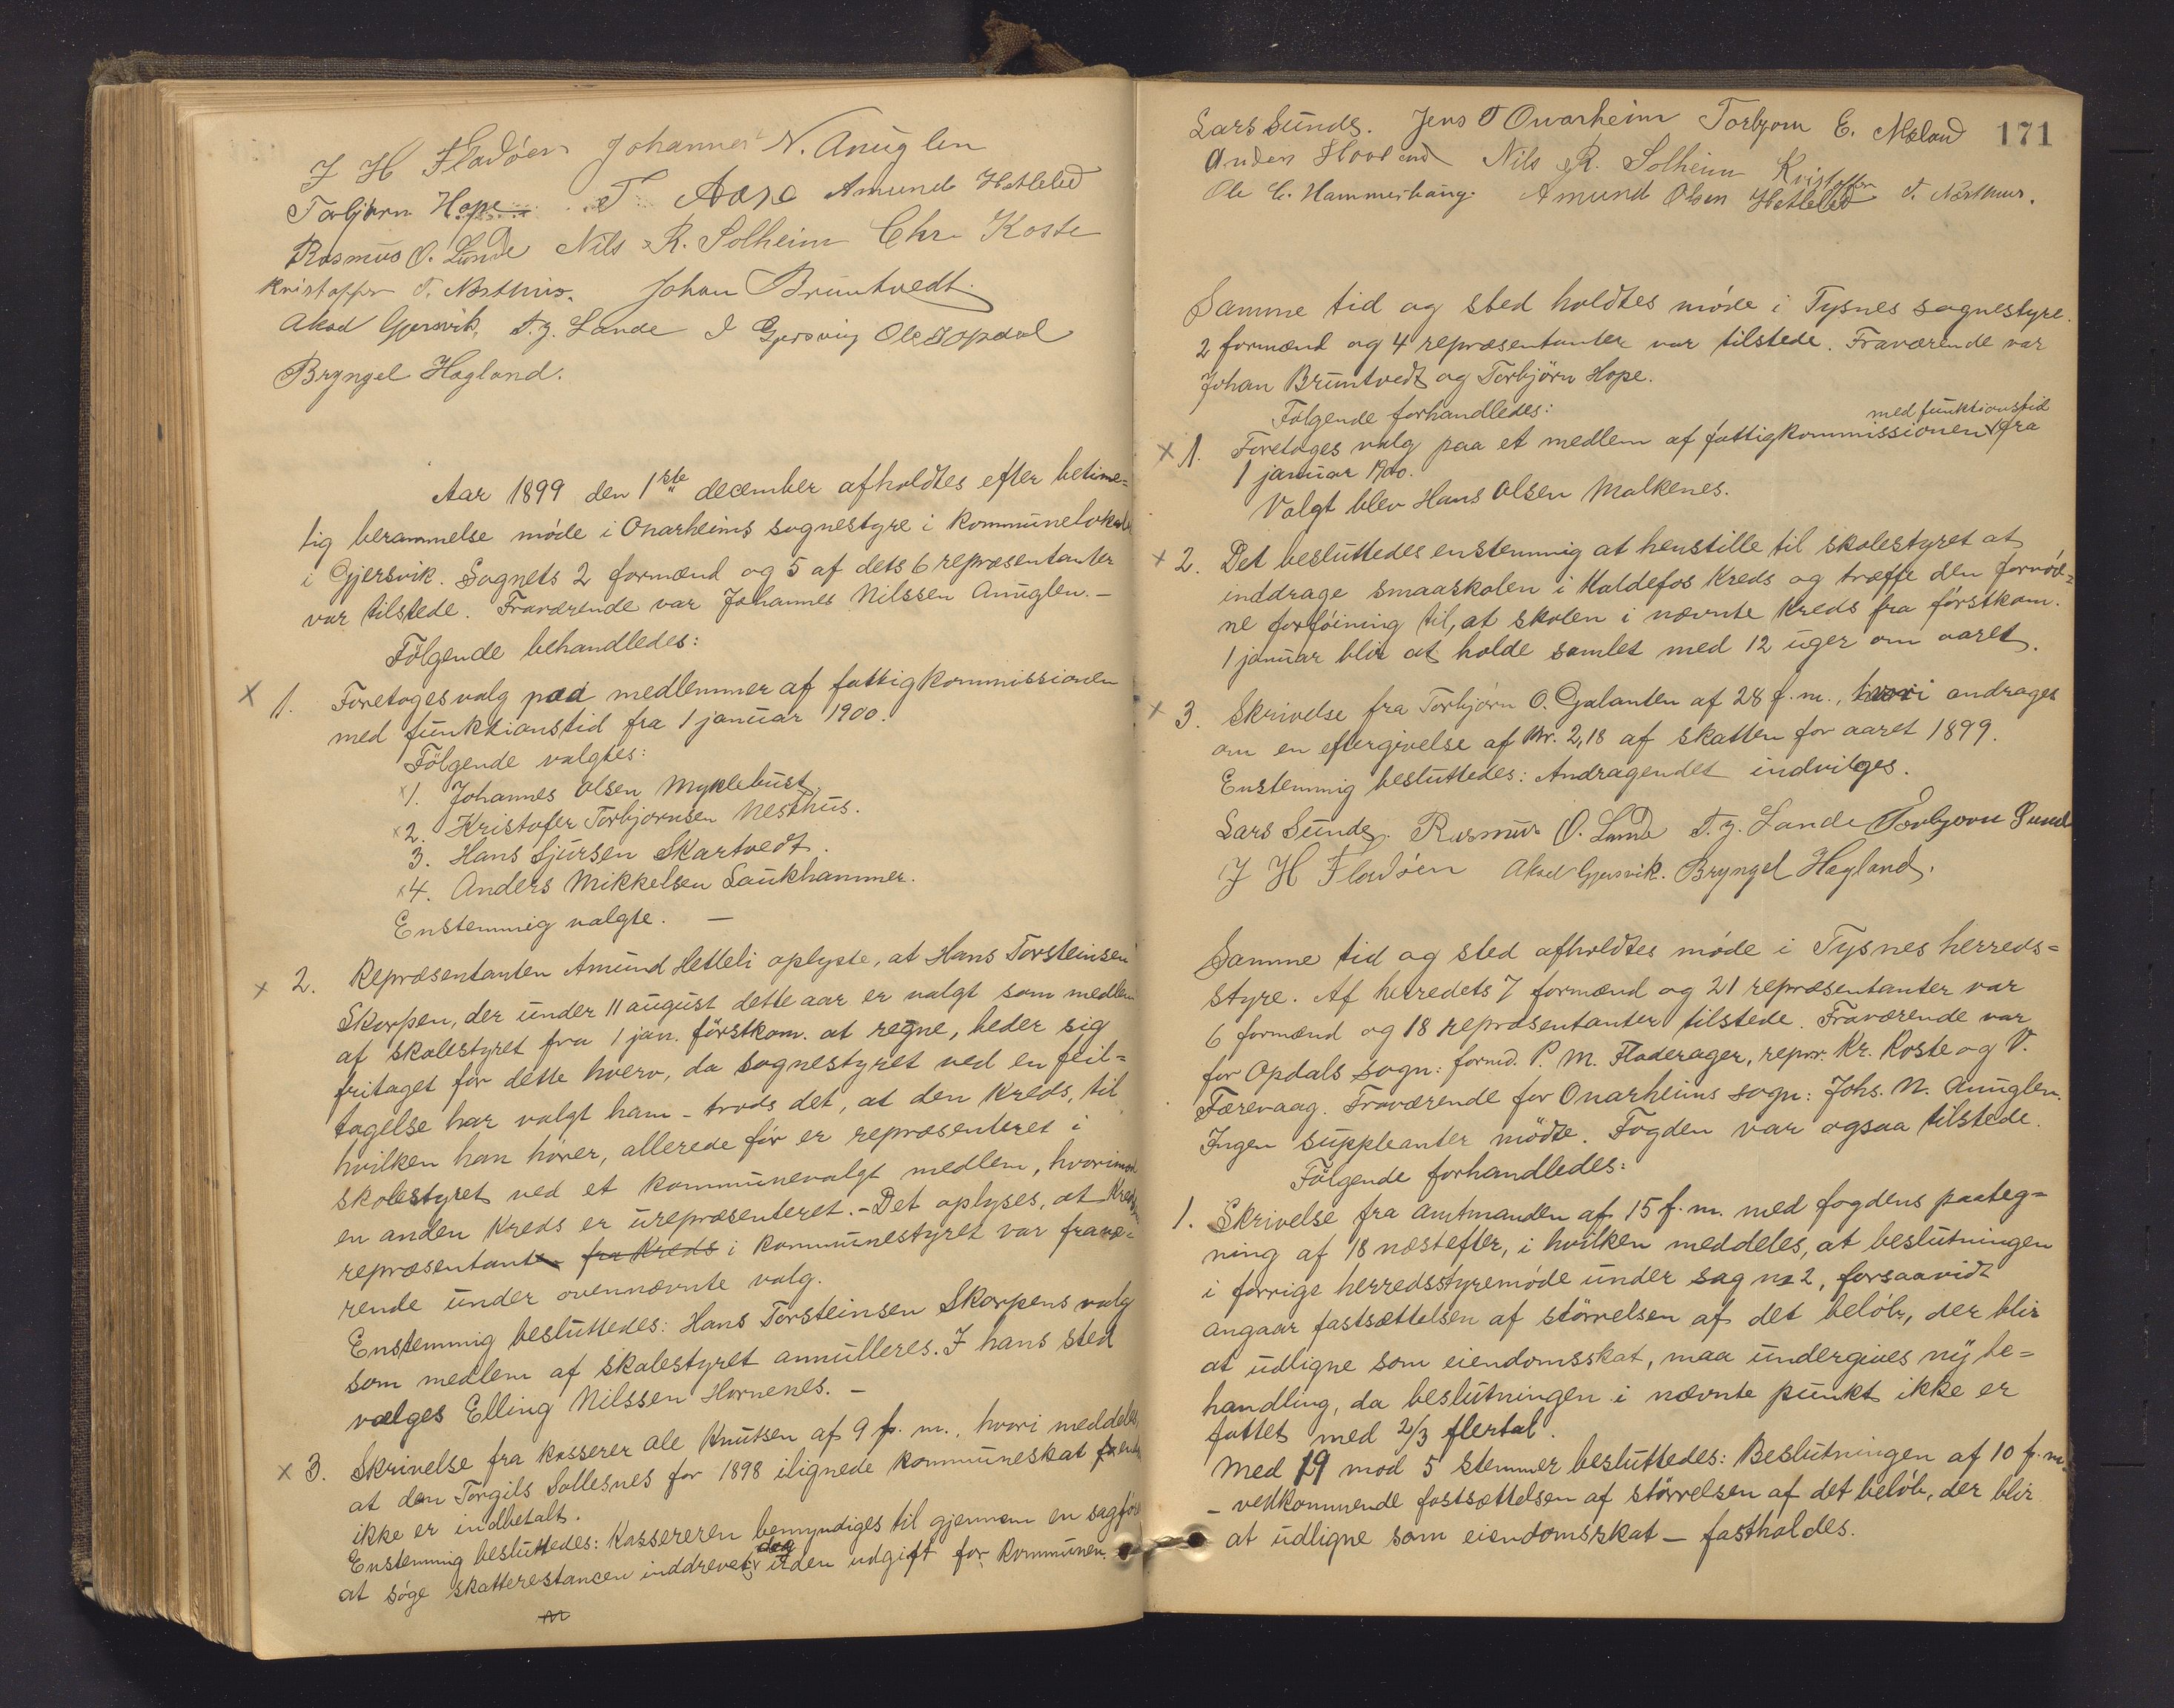 J H Fladøen Johannes N. Anuglen
Torbjørn Hope T Aase Amund Hetleled
Rasmus O. Lunde Nils R. Solheim Chr. Koste
Kristoffer T. Nesthus. Johan Bruntvedt.
Akod Gjersvik. T. J. Lande I Gjersvig Ole Opdal
Bryngel Hagland.
Aar 1899 den 1ste december afholdtes efter betime=
lig berammelse møde i Onarheims sognestyre i kommunelokalet
i Gjersvik. Sognets 2 formænd og 5 af dets 6 repræsentanter
var tilstede. Fraværende var Johannes Nilssen Anuglen. –
Følgende behandledes:
x 1. Foretoges valg paa medlemmer af fattigkommissionen
med funktionstid fra 1 januar 1900.
Følgende valgtes:
x1. Johannes Olsen Myklebust
x2. Kristofer Torbjørnsen Nesthus.
3. Hans Sjursen Skartvedt.
x4. Anders Mikkelsen Laukhammer.
Enstemmig valgte. –
x 2. Repræsentanten Amund Hetleli oplyste, at Hans Torsteinsen
Skorpen, der under 11 august dette aar er valgt som medlem
af skolestyret fra 1 jan. førstkom. at regne, beder sig
fritaget for dette hverv, da sognestyret ved en feil=
tagelse har valgt ham – trods det, at den kreds, til
hvilken han hører, allerede før er repræsenteret i
skolestyret ved et kommunevalgt medlem, hvorimod
en anden kreds er urepræsenteret. – Det oplyses, at kredsens
repræsentant fra kreds i kommunestyret var fravæ=
rende under ovennævnte valg.
Enstemmig besluttedes: Hans Torsteinsen Skorpens valg
som medlem af skolestyret annulleres. I hans sted
vælges Elling Nilssen Hornenes. –
x 3. Skrivelse fra kasserer Ole Knutsen af 9 f. m., hvori meddeles,
at den Torgils Sollesnes for 1898 ilignede kommuneskat
ikke er indbetalt.
Enstemmig besluttedes: Kassereren bemyndiges til gjennem en sagfører
at søge skatterestancen inddrevet, dog uden udgift for kommunen.
171
Lars Sunde. Jens T Onarheim Torbjørn E. Neland
Anders Hovland Nils R. Solheim Kristoffer
Ole C. Hammerhaug. Amund Olsen Hetleled T. Nesthus.
Samme tid og sted holdtes møde i Tysnes sognestyre.
2 formænd og 4 repræsentanter var tilstede. Fraværende var
Johan Bruntvedt og Torbjørn Hope.
Følgende forhandledes:
x 1. Foretoges valg paa et medlem af fattigkommissionen med funktionstid fra
1 januar 1900.
Valgt blev Hans Olsen Malkenes.
x 2. Det besluttedes enstemmig at henstille til skolestyret at
inddrage smaaskolen i Kaldefos kreds og træffe den fornød=
ne forføining til, at skolen i nævnte kreds fra førstkom.
1 januar blir at holde samlet med 12 uger om aaret.
x 3. Skrivelse fra Torbjørn O. Galanten af 28 f. m., hvori andrages
om en eftergivelse af Kr. 2,18 af skatten for aaret 1899.
Enstemmig besluttedes: Andragendet indvilges.
Lars Sunde. Rasmus O. Lunde T. J. Lande Torbjørn Sund
J H Fladøen Akod Gjersvik. Bryngel Hagland.
Samme tid og sted afholdtes møde i Tysnes herreds=
styre. Af herredets 7 formænd og 21 repræsentanter var
6 formænd og 18 repræsentanter tilstede. Fraværende var
for Opdals sogn: formd. P. M. Fladerager, repr. Kr. Koste og V.
Færevaag. Fraværende for Onarheims sogn: Johs. N. Anuglen.
Ingen suppleanter mødte. Fogden var ogsaa tilstede.
Følgende forhandledes:
1. Skrivelse fra amtmanden af 15 f. m. med fogdens paateg=
ning af 18 næstefter, i hvilken meddeles, at beslutningen
i forrige herredsstyremøde under sag no 2, forsaavidt
angaar fastsættelsen af størrelsen af det beløb, der blir
at udligne som eiendomsskat, maa undergives ny be=
handling, da beslutningen i nævnte punkt ikke er
fattet med 2/3 flertal.
Med 19 mod 5 stemmer besluttedes: Beslutningen af 10 f. m.
– vedkommende fastsættelsen af størrelsen af det beløb, der blir
at udligne som eiendomsskat – fastholdes.